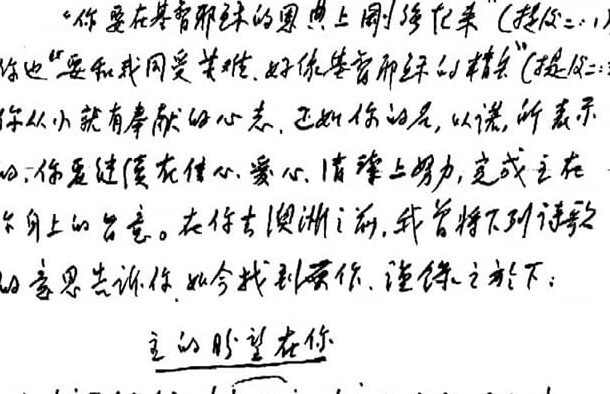 “你要在基督耶稣的恩典上刚强起来”(提后二:1)
你也“要和我同受苦难,好像基督耶稣的精兵”(提后二:3
你从小就有奉献的心志,正如你的名,以诺,所表示
的;你要继续在信心、爱心、清洁上努力,完成主在
你身上的旨意。在你去澳洲之前,我曾将下列诗歌
的意思告诉你,如今找到原作,谨录之於下:
主的盼望在你